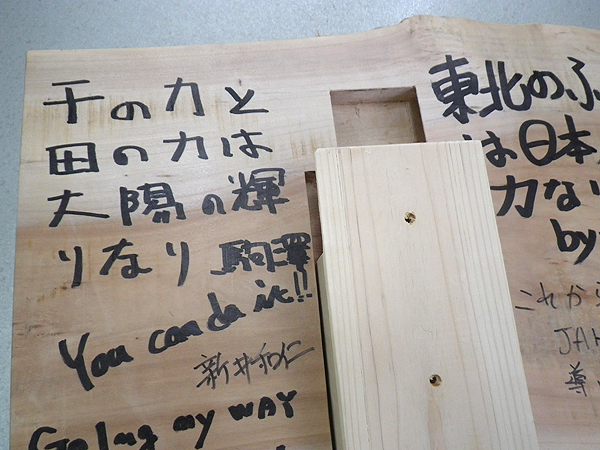 干の力と
田の力は
大陽の輝
りなり 駒澤
You can do it!!
新井和仁
Going my WAY
東北のふ
は日本
力なり
by
これから
JA
導